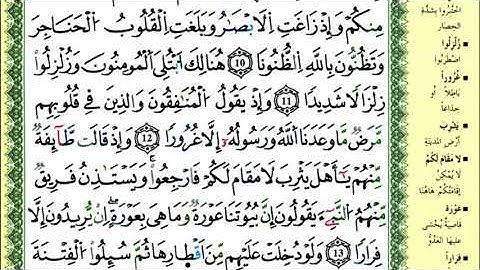 مِنكُمْ وَإِذْ زَاغَتِ اِ۬لَابْصَٰرُ وَبَلَغَتِ اِ۬لْقُلُوبُ اُ۬لْحَنَاجِرَ
وَتَظُنُّونَ بِاللَّهِ اِ۬لظُّنُونَا ۝10 هُنَالِكَ اَ۪بْتُلِيَ اَ۬لْمُومِنُونَ وَزُلْزِلُوا
زِلْزَالاً شَدِيداً ۝11 وَإِذْ يَقُولُ اُ۬لْمُنَٰفِقُونَ وَالَّذِينَ فِي قُلُوبِهِم
مَّرَضٌ مَّا وَعَدَنَا اَ۬للَّهُ وَرَسُولُهُۥ إِلَّا غُرُوراً ۝12 وَإِذْ قَالَت طَّآئِفَةٌ
مِّنْهُمْ يَٰٓأَهْلَ يَثْرِبَ لَا مَقَامَ لَكُمْ فَارْجِعُوا وَيَسْتَٰذِنُ فَرِيقٌ
مِّنْهُمُ اُ۬لنَّبِيٓءَ يَقُولُونَ إِنَّ بُيُوتَنَا عَوْرَةٌ وَمَا هِيَ بِعَوْرَةٍ اِنْ يُّرِيدُونَ إِلَّا
فِرَاراً ۝13 وَلَوْ دُخِلَتْ عَلَيْهِم مِّنَ اَقْطَارِهَا ثُمَّ سُئِلُوا اُ۬لْفِتْنَةَ
اختُبِروا بشدَّة
الحصار
زُلْزِلُوا
اضطربوا
غُرُوراً
باطلاً أو
خداعا
يثرب
أرض المدينة
لا مقام لكم
لا يُمكن
إقامتكم هاهنا
عَوْرَة
قاصية يُخشى
عليها العدوّ
فراراً